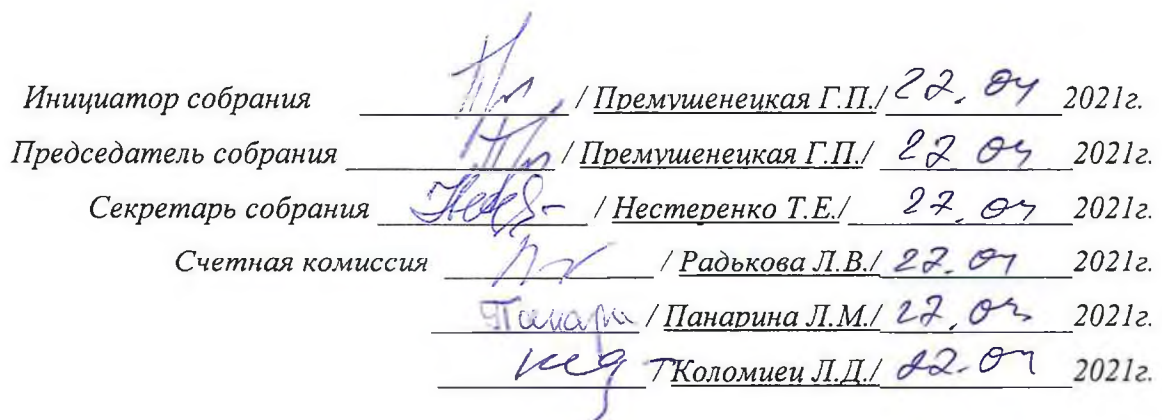 Инициатор собрания / Премушенецкая Г.П./ 22.04 2021г.
Председатель собрания / Премушенецкая Г.П./ 22 04 2021г.
Секретарь собрания / Нестеренко Т.Е./ 22.04 2021г.
Счетная комиссия / Радькова Л.В./ 22.04 2021г.
/ Панарина Л.М./ 22.04 2021г.
/ Коломиец Л.Д./ 22.04 2021г.